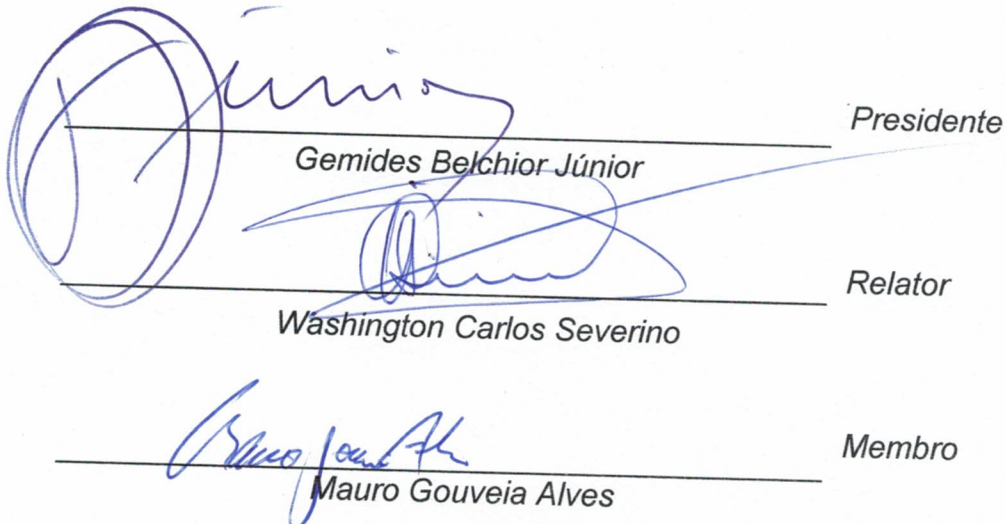 Júnior
Presidente
Gemides Belchior Júnior
Relator
Washington Carlos Severino
Membro
Mauro Gouveia Alves